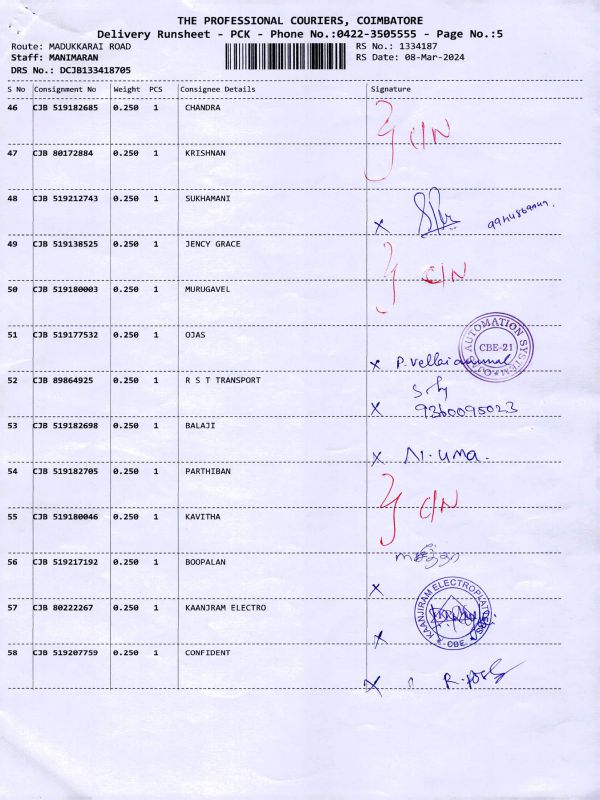 THE PROFESSIONAL COURIERS, COIMBATORE
Delivery Runsheet - PCK - Phone No.:0422-3505555 - Page No.:5
Route: MADUKKARAI ROAD RS No.: 1334187
Staff: MANIMARAN RS Date: 08-Mar-2024
DRS No.: DCJB133418705
S No Consignment No Weight PCS Consignee Details Signature
46 CJB 519182685 0.250 1 CHANDRA C/N
47 CJB 80172884 0.250 1 KRISHNAN
48 CJB 519212743 0.250 1 SUKHAMANI X
49 CJB 519138525 0.250 1 JENCY GRACE C/N
50 CJB 519180003 0.250 1 MURUGAVEL
51 CJB 519177532 0.250 1 OJAS X P. Vellaiammal
OJAS AUTOMATION SYSTEM
CBE-21
52 CJB 89864925 0.250 1 R S T TRANSPORT X 9360095023
53 CJB 519182698 0.250 1 BALAJI X N. UMA.
54 CJB 519182705 0.250 1 PARTHIBAN C/N
55 CJB 519180046 0.250 1 KAVITHA
56 CJB 519217192 0.250 1 BOOPALAN X
57 CJB 80222267 0.250 1 KAANJRAM ELECTRO X
KAANJIRAM ELECTROPLATTERS
CBE
58 CJB 519207759 0.250 1 CONFIDENT X